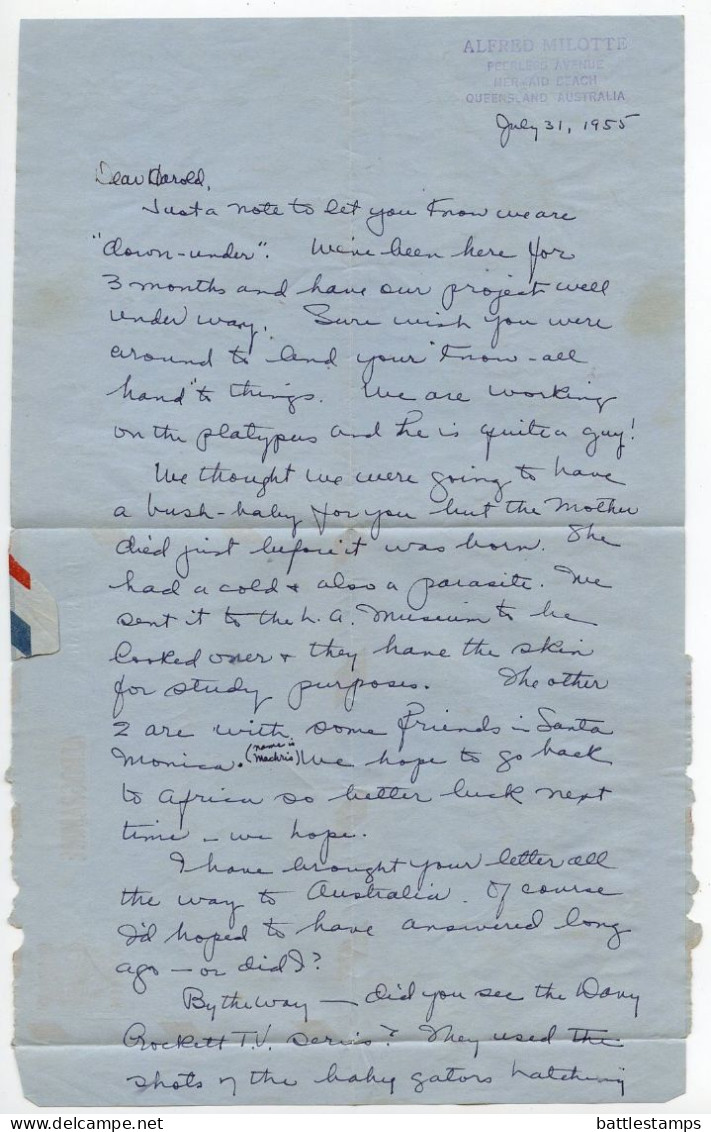 ALFRED MILOTTE
PEERLESS AVENUE
MERMAID BEACH
QUEENSLAND AUSTRALIA
July 31, 1955
Dear Harold,
Just a note to let you know we are
"down-under". We've been here for
3 months and have our project well
under way. Sure wish you were
around to lend your "know-all
hand" to things. We are working
on the platypus and he is quite a guy!
We thought we were going to have
a bush-baby for you but the Mother
died just before it was born. She
had a cold & also a parasite. We
sent it to the L.A. Museum to be
looked over & they have the skin
for study purposes. The other
2 are with some friends in Santa
Monica. (name is Machris) We hope to go back
to Africa so better luck next
time – we hope.
I have brought your letter all
the way to Australia. Of course
I'd hoped to have answered long
ago – or did I?
By the way – did you see the Davy
Crockett T.V. series? They used the
shots of the baby gators hatching
battlestamps